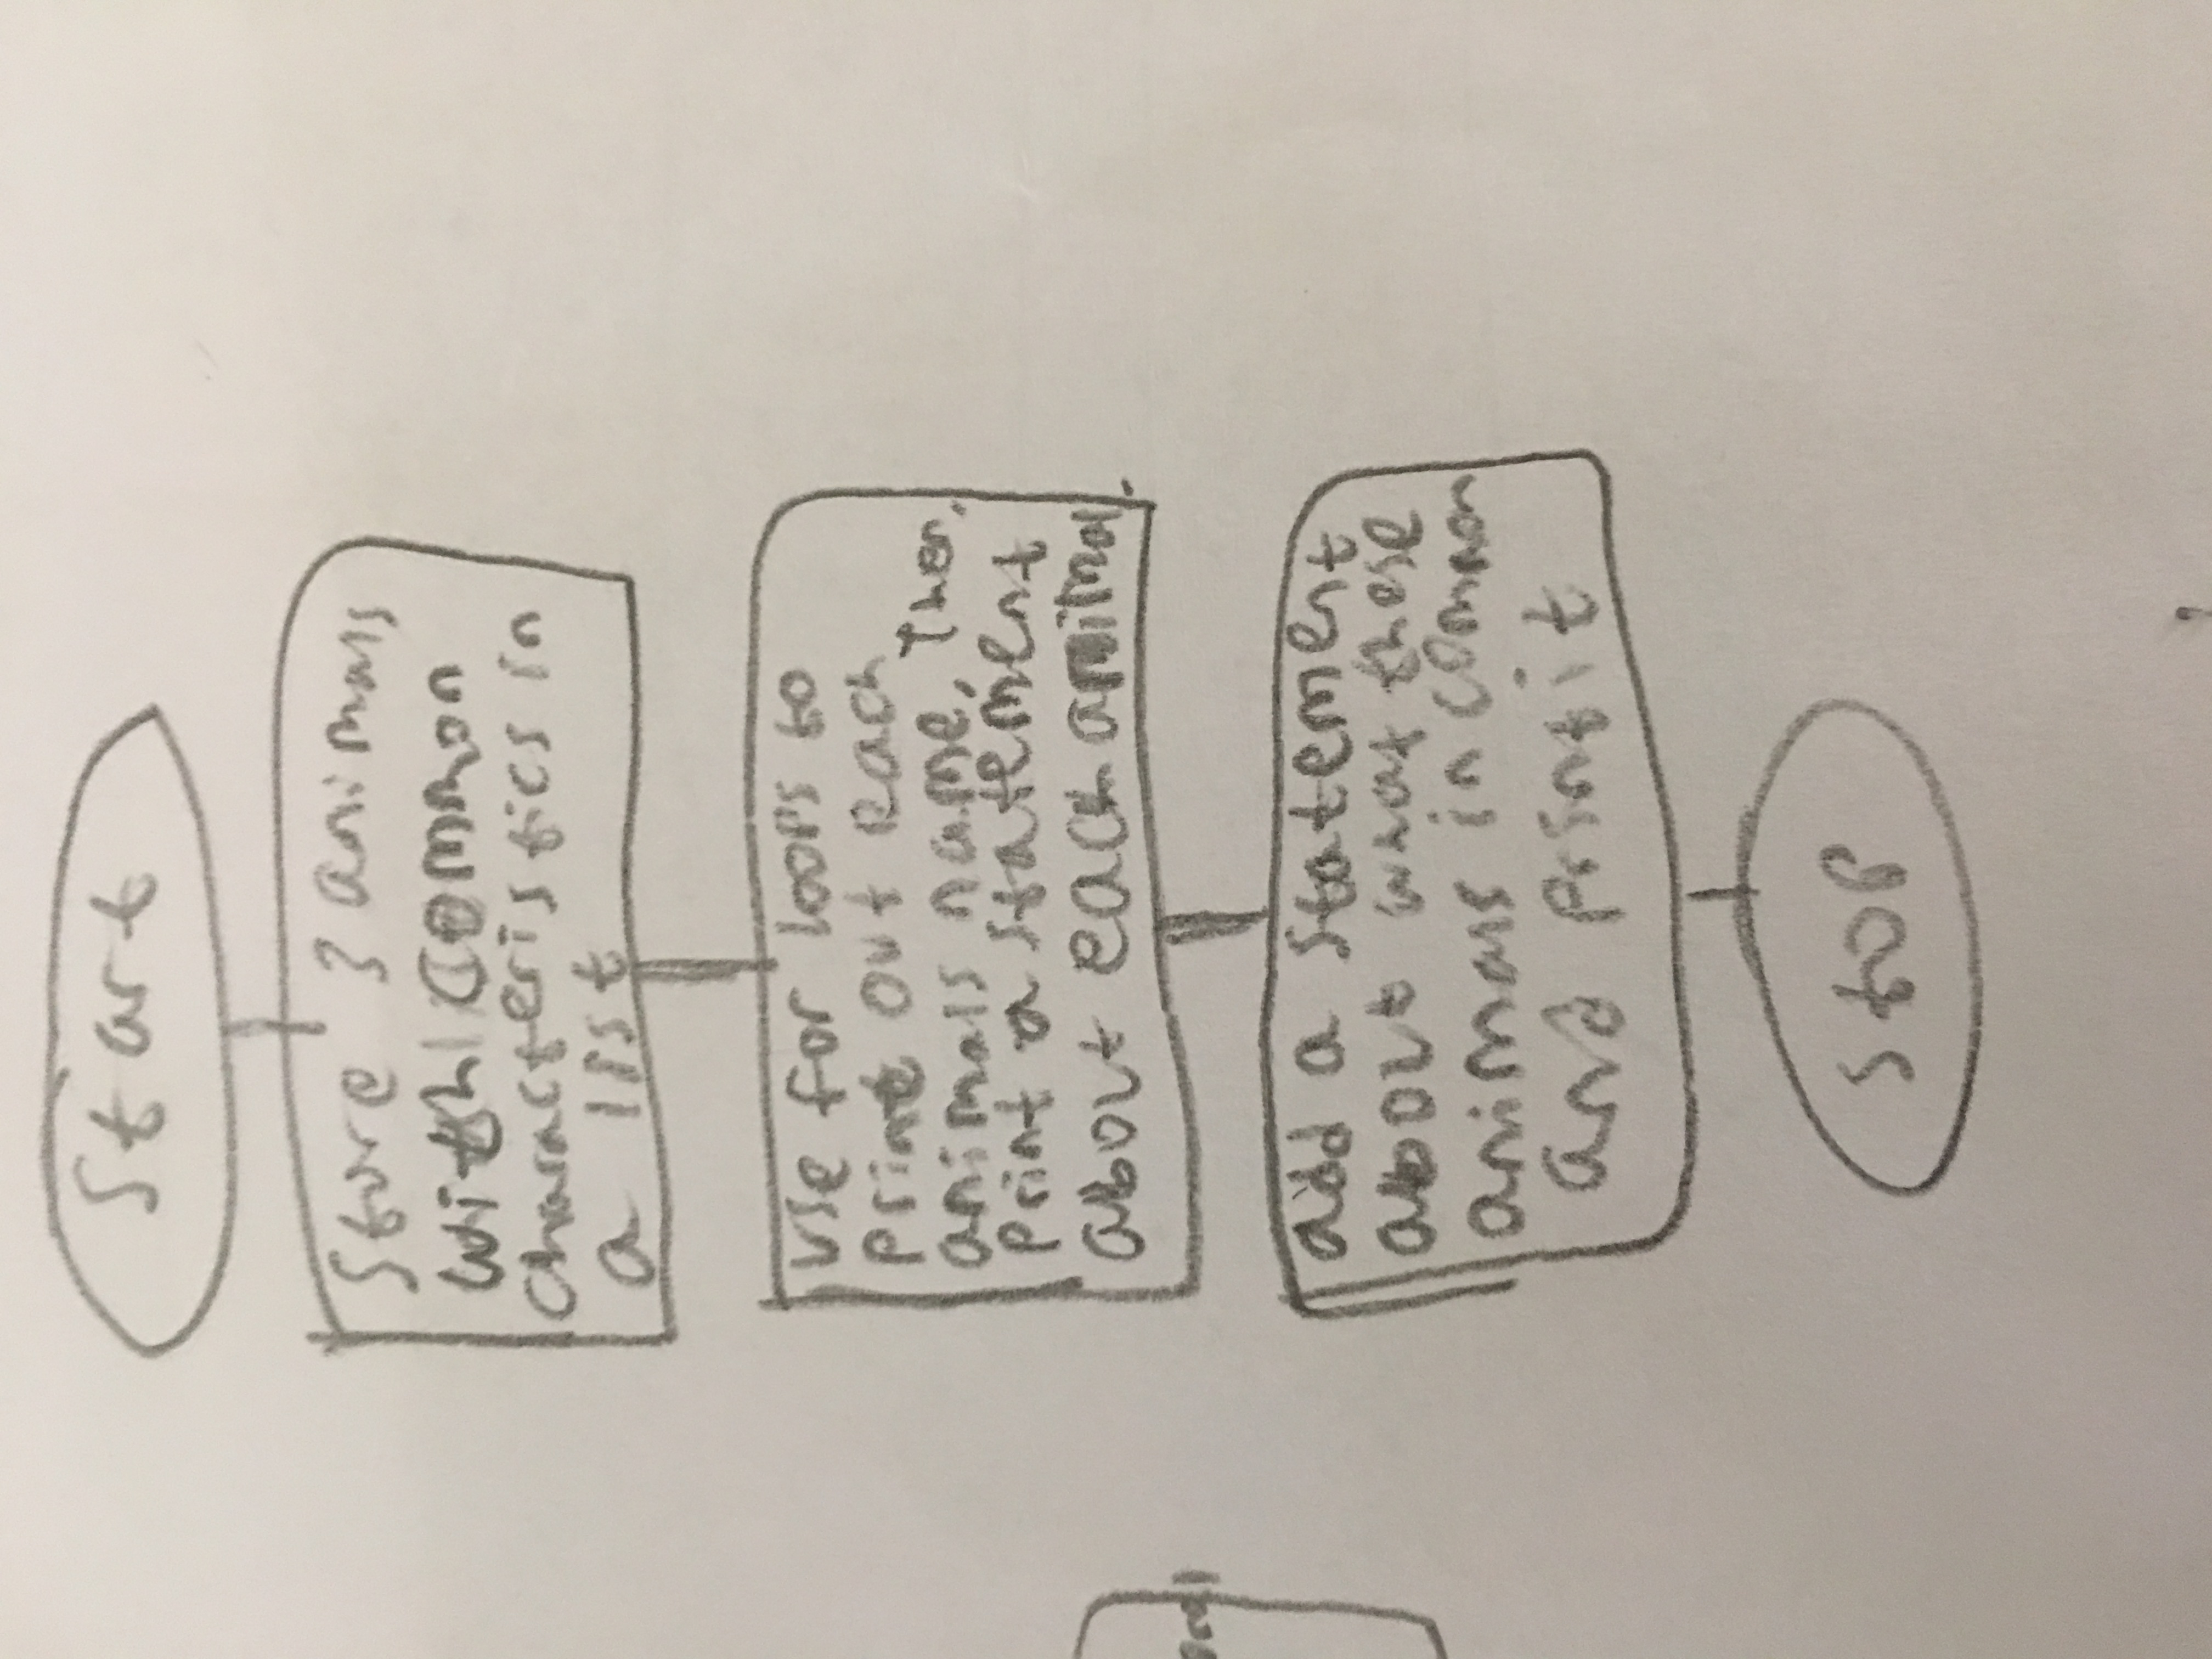 Start
Store 3 animals
with common
characteristics in
a list
Use for loops to
print out each
animals name. Then,
print a statement
about each animal.
add a statement
about what these
animals in common
and print it
Stop